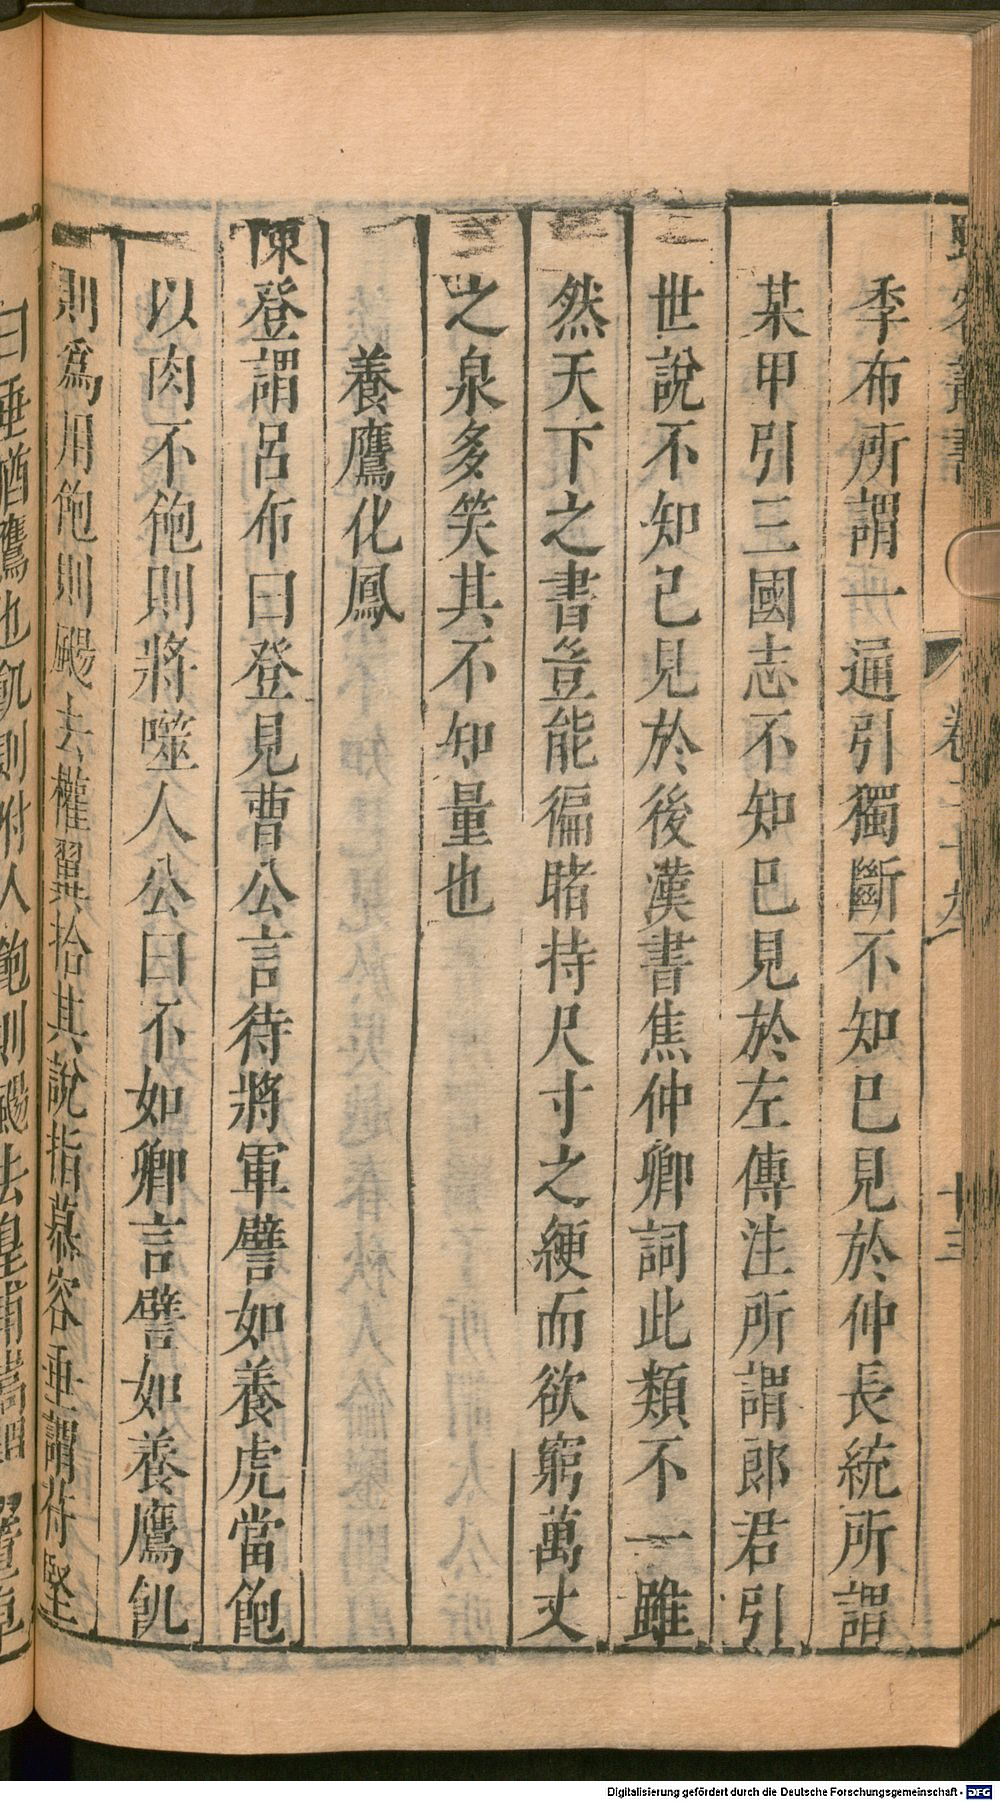 野客叢書 卷二十九 十三
季布所謂一遍引獨斷不知已見於仲長統所謂
某甲引三國志不知已見於左傳注所謂郎君引
世說不知已見於後漢書焦仲卿詞此類不一雖
然天下之書豈能徧睹持尺寸之綆而欲窮萬丈
之泉多笑其不知量也
養鷹化鳳
陳登謂呂布曰登見曹公言待將軍譬如養虎當飽
以肉不飽則將噬人公曰不如卿言譬如養鷹飢
則爲用飽則颺去權翼拾其說指慕容垂謂苻堅
曰垂猶鷹也飢則附人飽則颺去皇甫
Digitalisierung gefördert durch die Deutsche Forschungsgemeinschaft - DFG